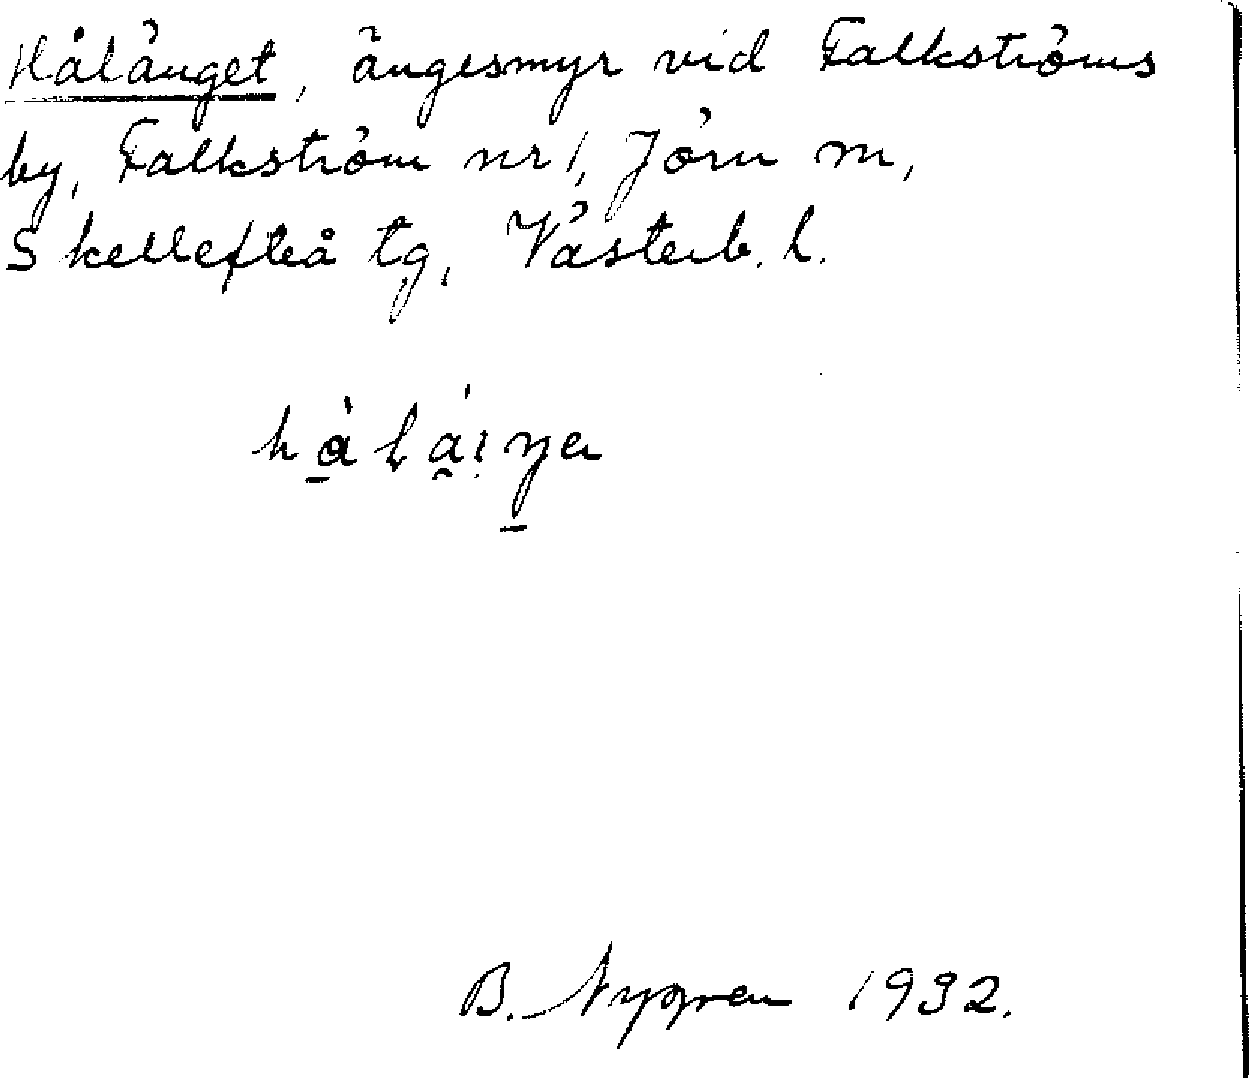 Hålänget, ängesmyr vid Falkströms
by, Falkström nr 1, Jörn sn,
Skellefteå tg, Västerb. l.
B. Nygren 1932.